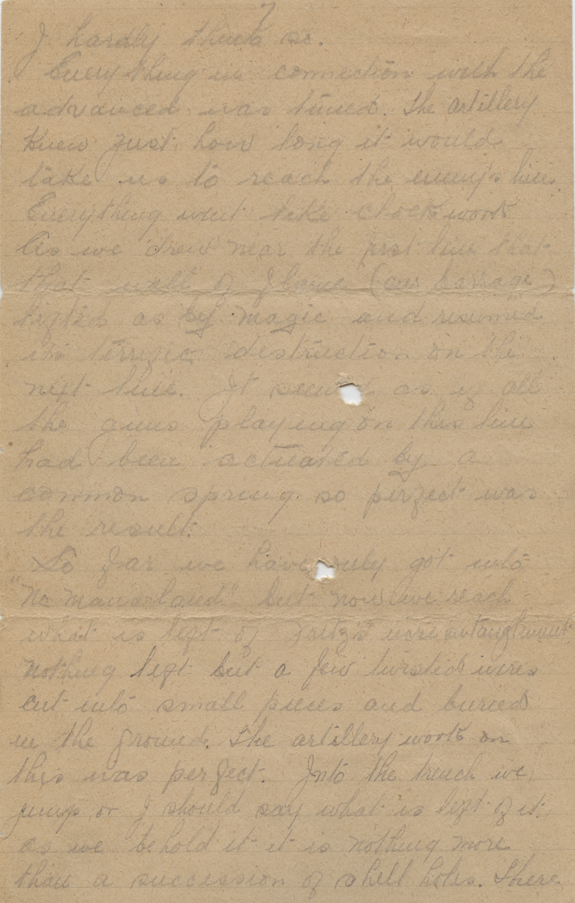 7
I hardly think so.
Everything in connection with the
advanced was timed. The artillery
knew just how long it would
take us to reach the enemy's lines.
Everything went like clockwork
As we drew near the first line that
that wall of flame (our barrage)
lifted as by magic and resumed
its terrific destruction on the
next line. It seemed as if all
the guns playing on this line
had been actuated by a
common spring so perfect was
the result.
So far we have only got into
"No mans land" but now we reach
what is left of Fritz's wire entanglement
nothing left but a few twisted wires
cut into small pieces and buried
in the ground. The artillery work on
this was perfect. Into the trench we
jump or I should say what is left of it.
as we behold it it is nothing more
than a succession of shell holes. There